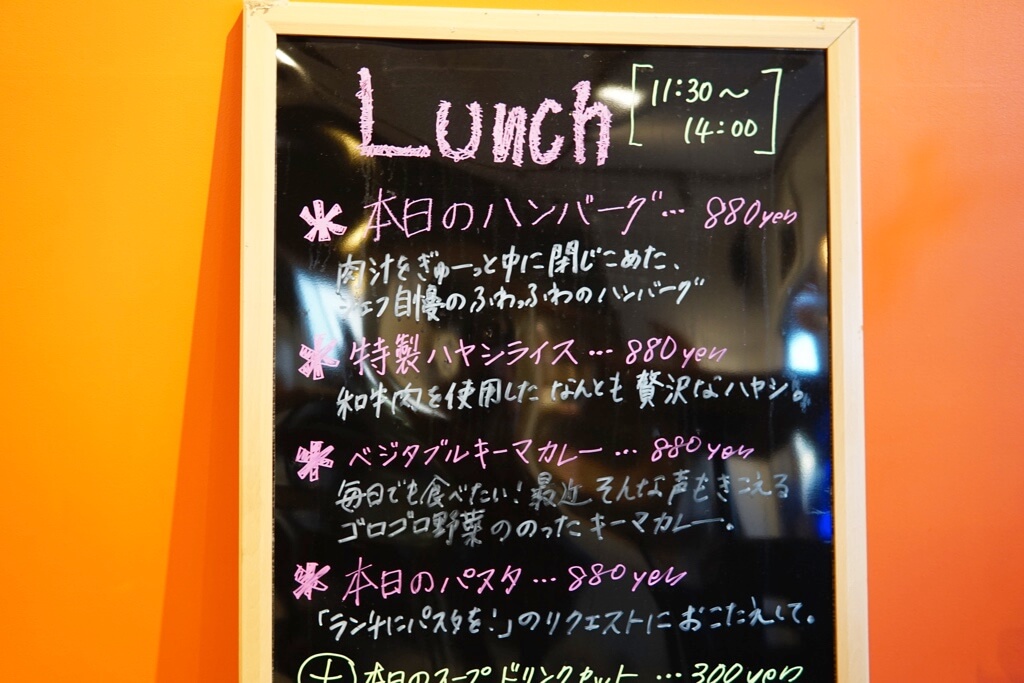 Lunch
[11:30～
14:00]
* 本日のハンバーグ… 880yen
肉汁をぎゅーっと中に閉じこめた、
シェフ自慢のふわっふわのハンバーグ
* 特製ハヤシライス… 880yen
和牛肉を使用したなんとも贅沢なハヤシ。
* ベジタブルキーマカレー… 880yen
毎日でも食べたい!最近そんな声もきこえる
ゴロゴロ野菜ののったキーマカレー。
* 本日のパスタ… 880yen
「ランチにパスタを!」のリクエストにおこたえして。
+ 本日のスープドリンクセット… 300yen